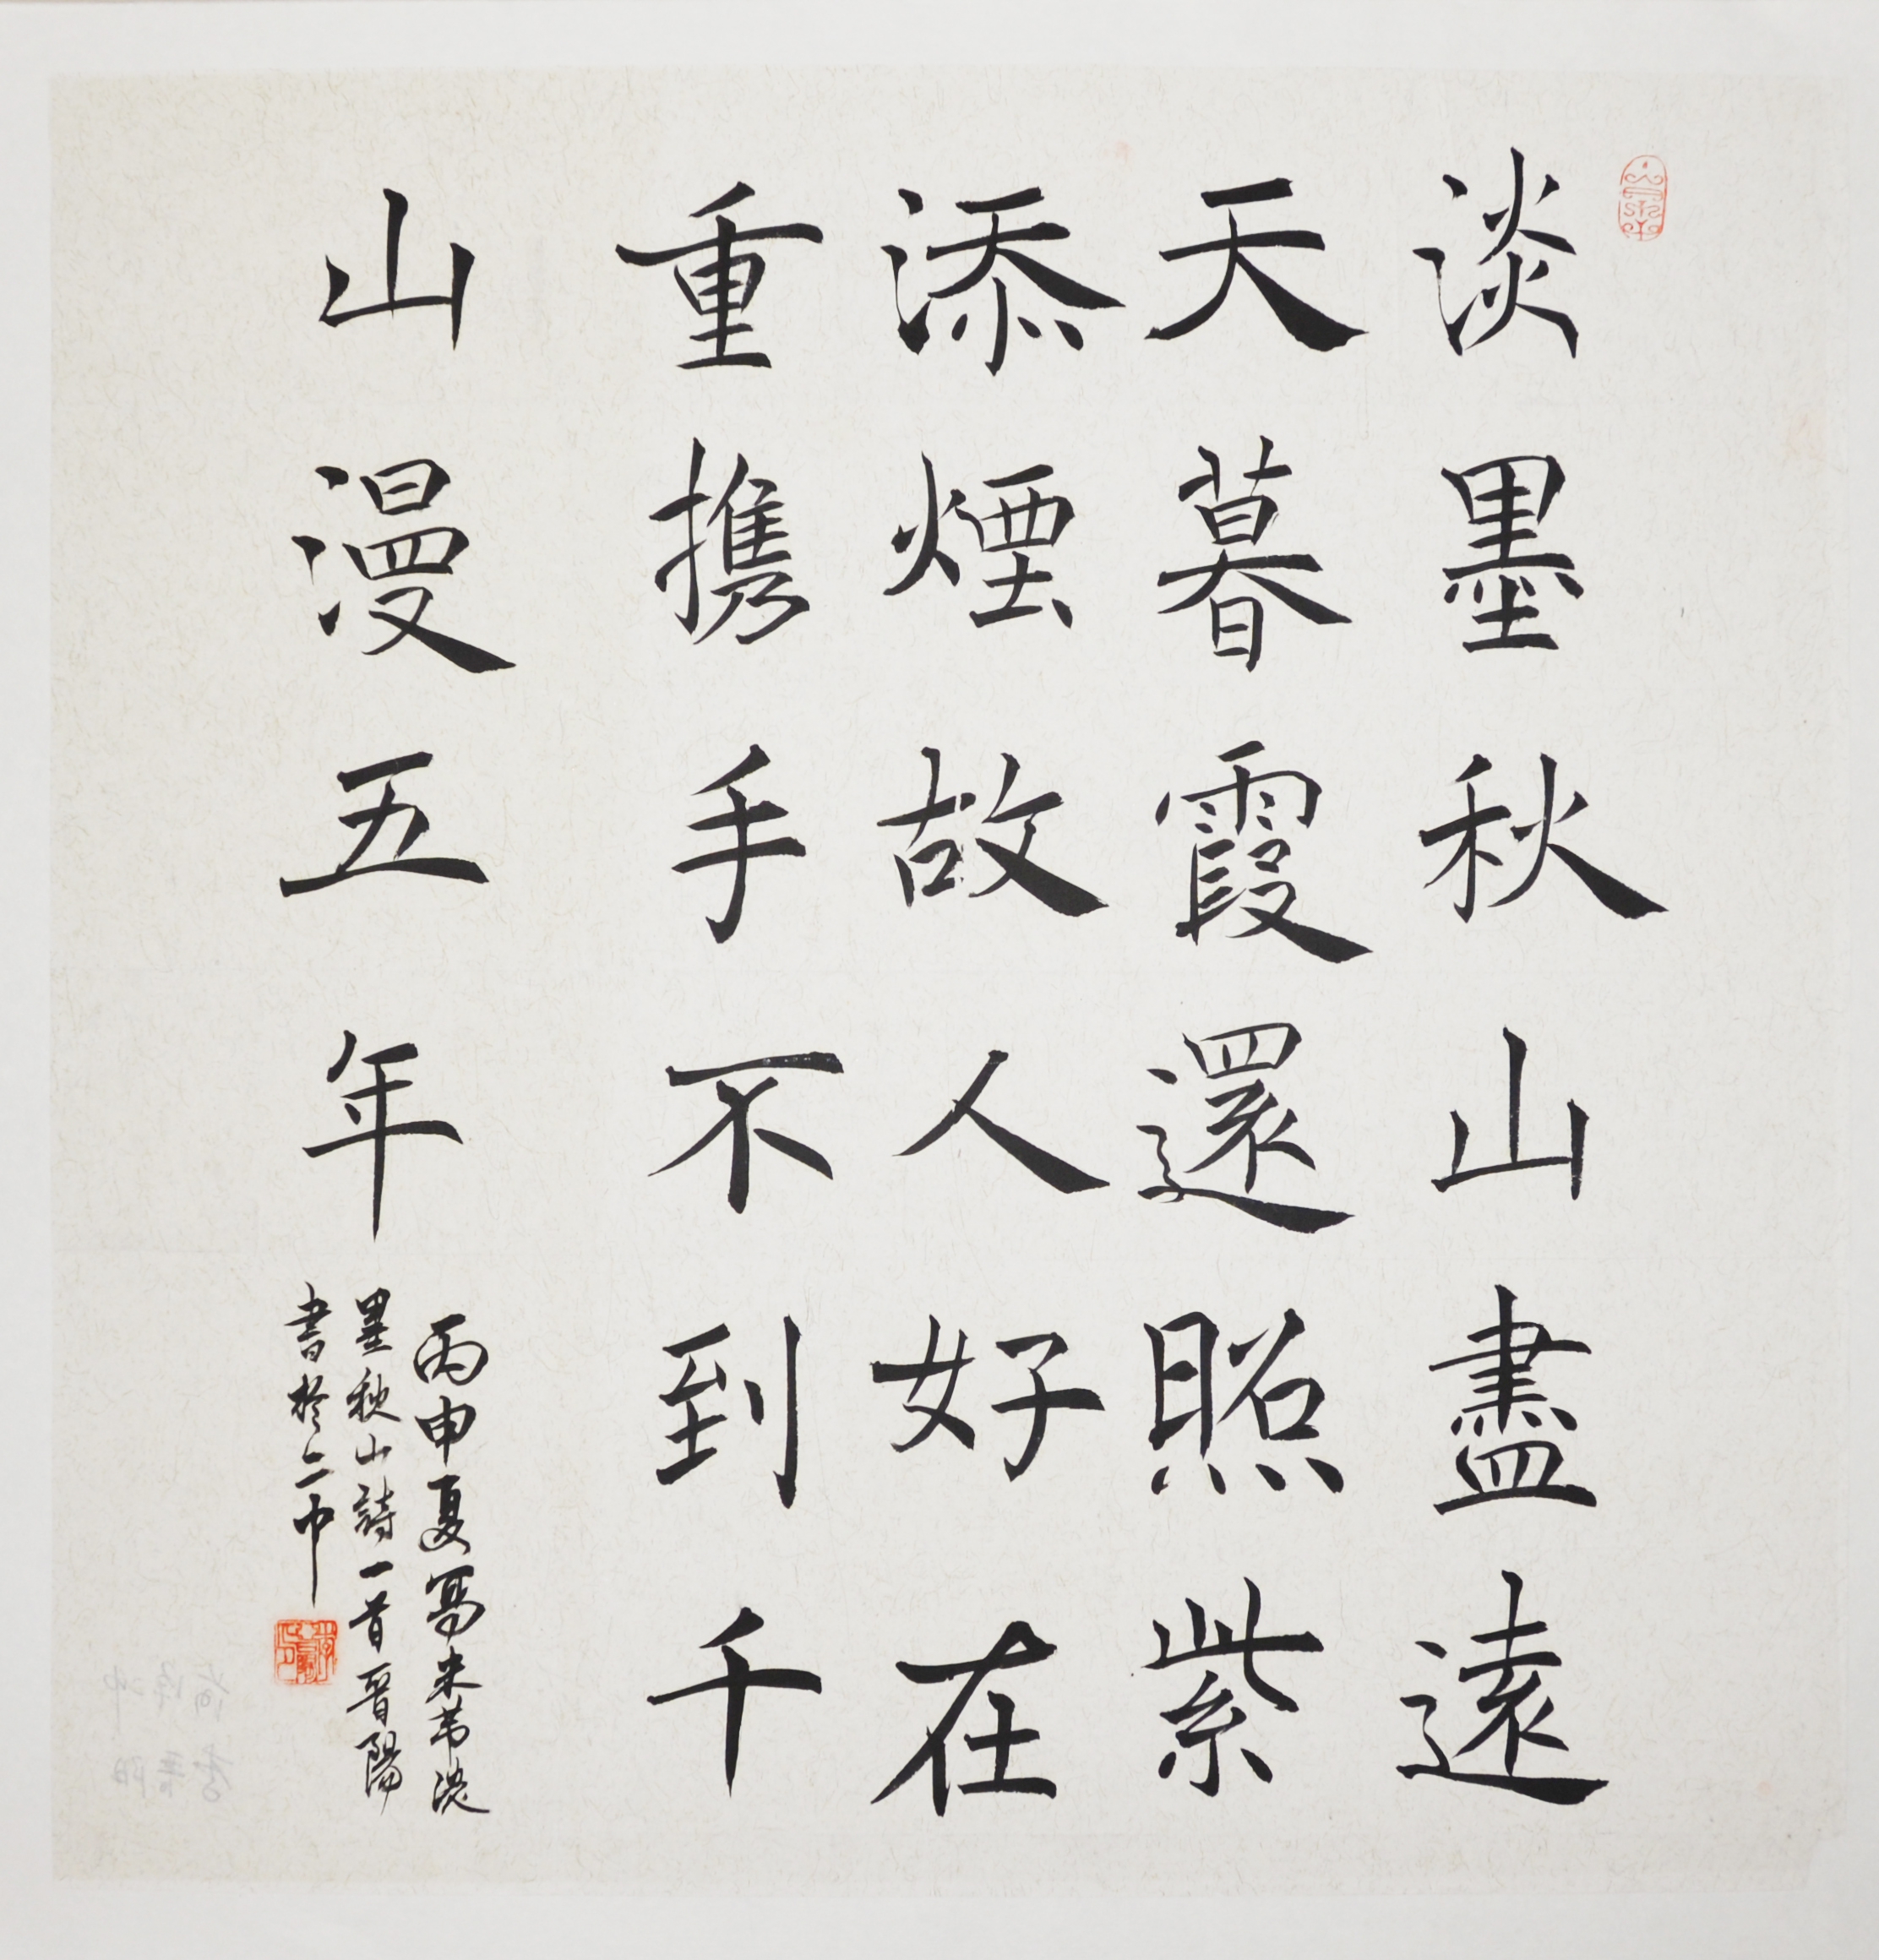 淡墨秋山盡遠
天暮霞還照紫
添煙故人好在
重携手不到千
山漫五年
丙申夏寫米芾淡
墨秋山詩一首晉陽
書於三中